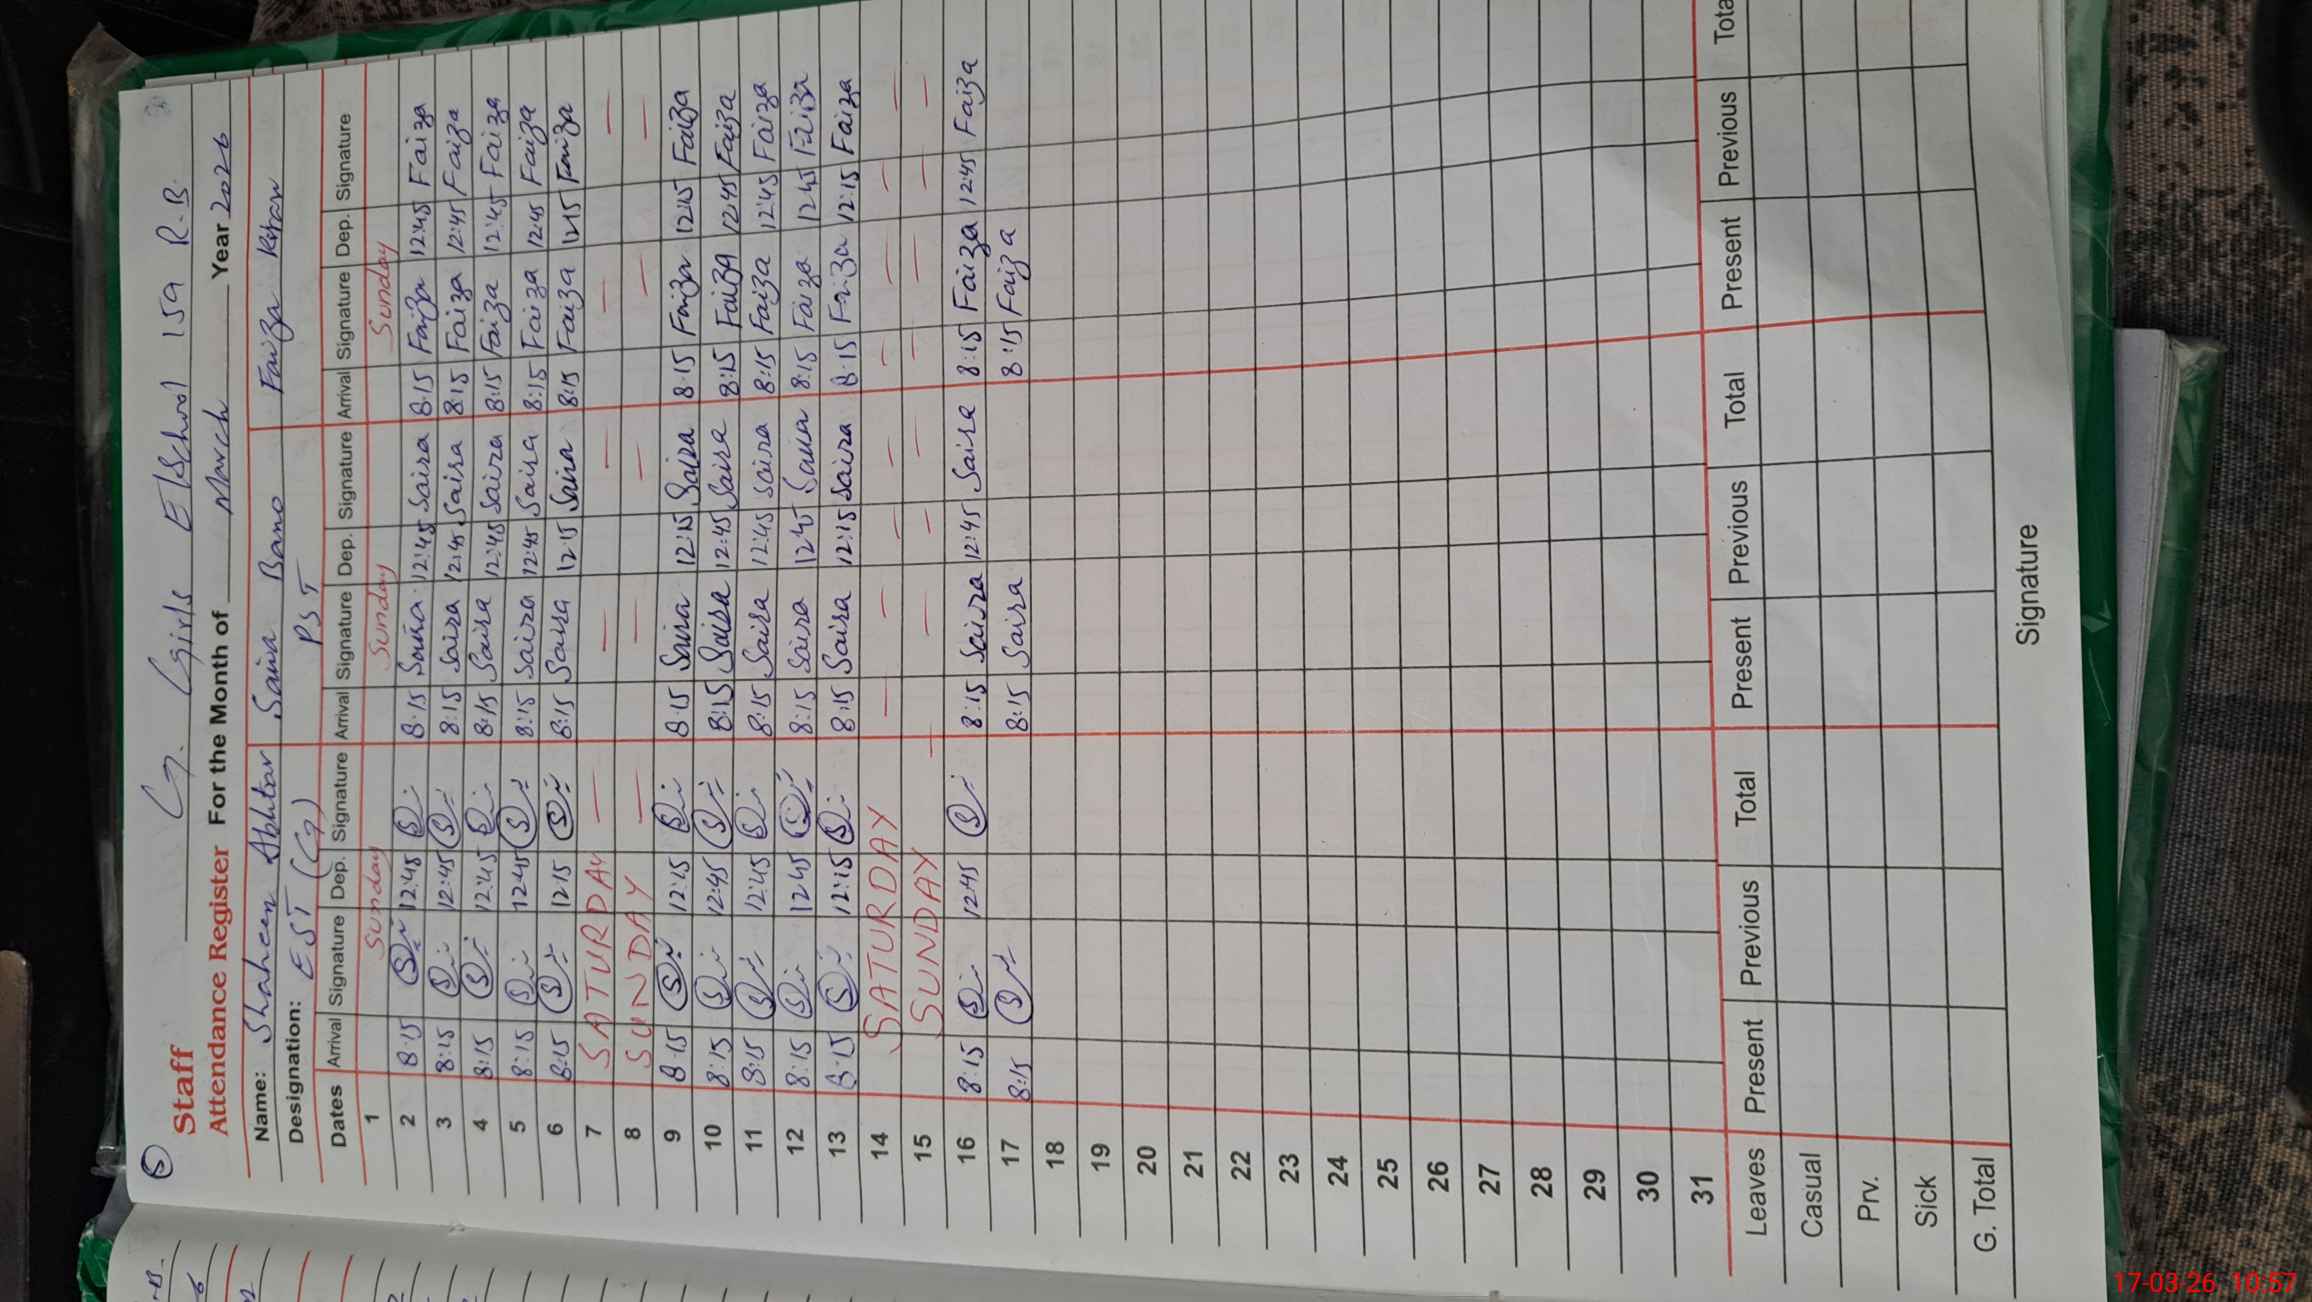 5
G. Girls E/School 159 R.B.
Staff
Attendance Register For the Month of March Year 2026
Name: Shaheen Akhtar Saira Bano Faiza
Designation: EST (G) PST
Dates Arrival Signature Dep. Signature Arrival Signature Dep. Signature Arrival Signature Dep. Signature
1 Sunday Sunday Sunday
2 8:15 12:45 8:15 Saira 12:45 Saira 8:15 Faiza 12:45 Faiza
3 8:15 12:45 8:15 Saira 12:45 Saira 8:15 Faiza 12:45 Faiza
4 8:15 12:45 8:15 Saira 12:45 Saira 8:15 Faiza 12:45 Faiza
5 8:15 12:45 8:15 Saira 12:45 Saira 8:15 Faiza 12:45 Faiza
6 8:15 12:15 8:15 Saira 12:15 Saira 8:15 Faiza 12:15 Faiza
7 SATURDAY — — — — — —
8 SUNDAY — — — — —
9 8:15 8:15 Saira Saira 8:15 Faiza Faiza
10 8:15 12:45 8:15 Saira 12:45 Saira 8:15 Faiza 12:45 Faiza
11 8:15 12:45 8:15 Saira 12:45 Saira 8:15 Faiza 12:45 Faiza
12 8:15 12:45 8:15 Saira 12:45 Saira 8:15 Faiza 12:45 Faiza
13 8:15 12:15 8:15 Saira 12:15 Saira 8:15 Faiza 12:15 Faiza
14 SATURDAY — — — — — — — —
15 SUNDAY — — — — — — — —
16 8:15 12:45 8:15 Saira 12:45 Saira 8:15 Faiza 12:45 Faiza
17 8:15 8:15 Saira 8:15 Faiza
18
19
20
21
22
23
24
25
26
27
28
29
30
31
Leaves Present Previous Total Present Previous Total Present Previous Total
Casual
Prv.
Sick
G. Total
Signature
17-03-26 10:57